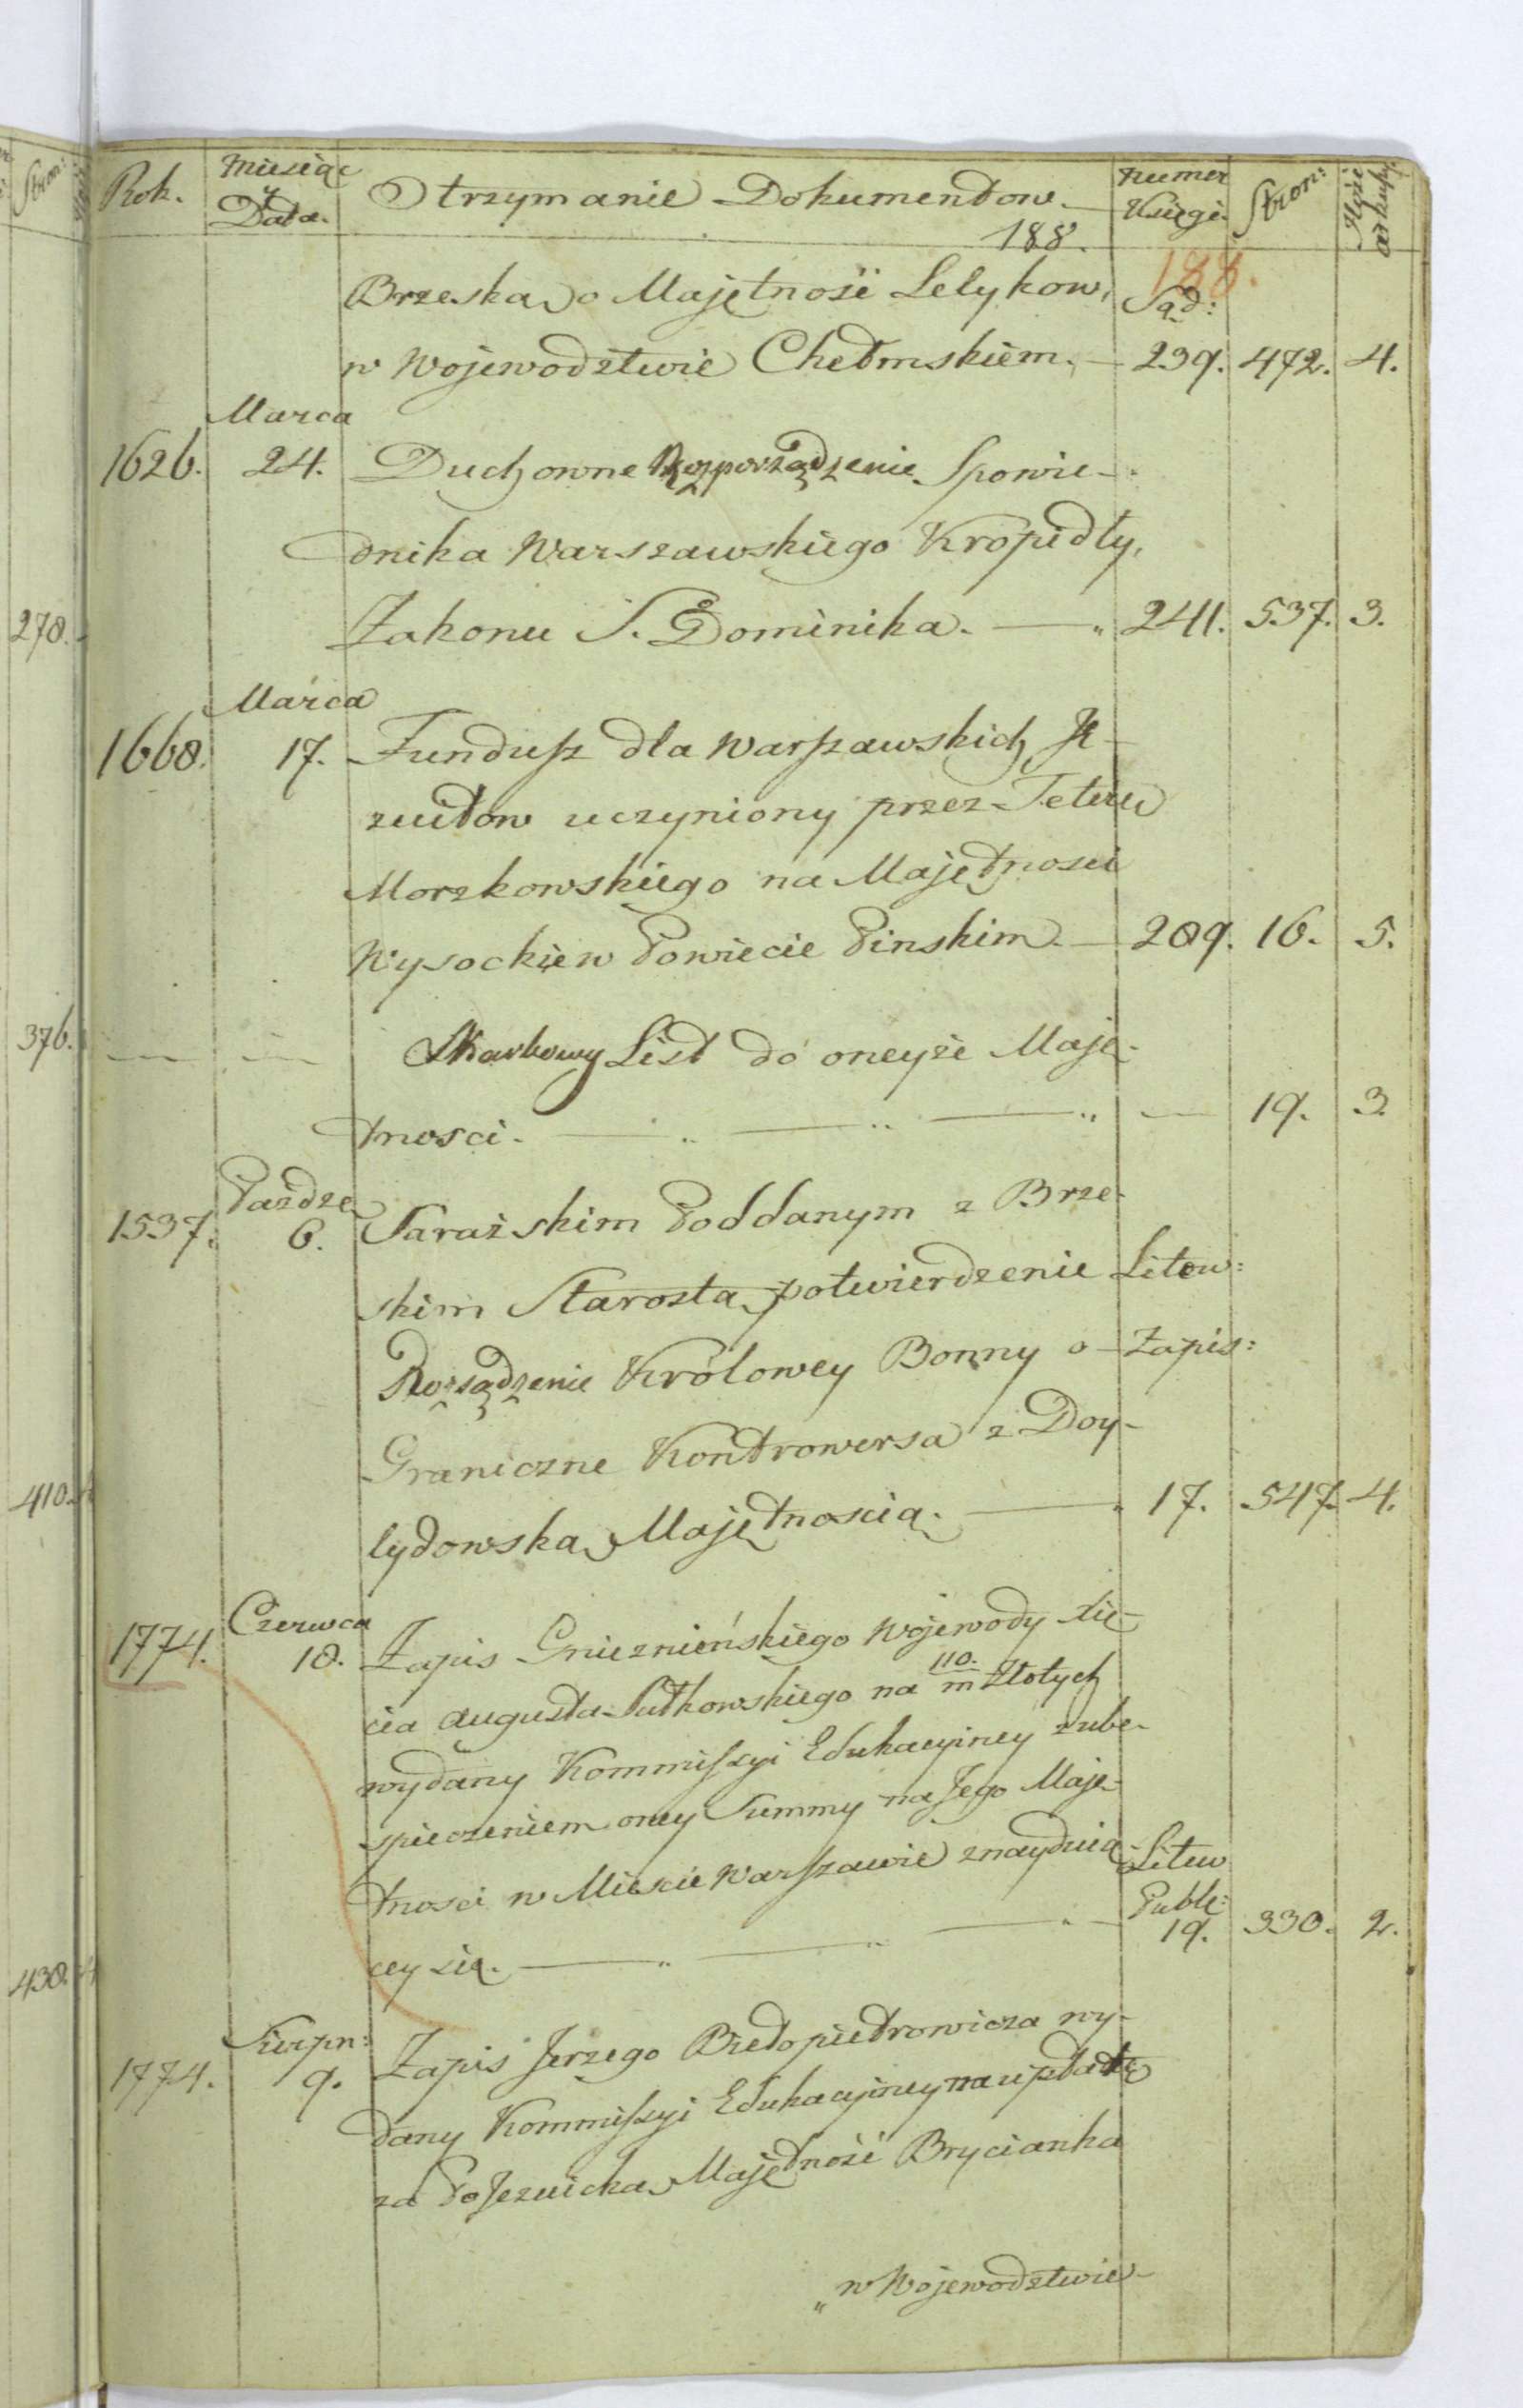 Rok. Miesiąc y Data. Otrzymanie Dokumentow. Numer Księgi. Stron: Ilość arkusz:
188.
188.
Brzeską o Majętność Lelykow, Sąd:
w Wojewodztwie Chełmskiem. — 239. 472. 4.
Marca
1626. 24. Duchowne Rozporządzenie Spowie-
dnika Warszawskiego Kropidły,
Zakonu S. Dominika. — 241. 537. 3.
Marca
1668. 17. Fundusz dla Warszawskich Je-
zuitow uczyniony przez
Morzkowskiego na Majętnosci
Wysockie w Powiecie Pinskim. — 289. 16. 5.
— — Skarbowy List do oneyże Maję-
tnosci. — — — — 19. 3.
Paźdze
1537. 6. Saraźskim Poddanym z Brze-
skim Starostą potwierdzenie Litew:
Rozsądzenie Królowey Bonny o Zapis:
Graniczne Kontrowersa z Doy-
lydowską Majętnoscią. — 17. 547. 4.
Czerwca
1774. 18. Zapis Gnieznieńskiego Wojewody Xię-
cia Augusta Sułkowskiego na 110. m Złotych
wydany Kommissyi Edukacyiney z ube-
spieczeniem oney Summy na Jego Maję-
tnosci w Miescie Warszawie znayduią- Litew
Publ:
cey się. — — — 19. 330. 2.
Sierpn:
1774. 9. Zapis Jerzego Białopietrowicza wy-
dany Kommissyi Edukacyiney na upłatę
za PoJezuicką Majętność Brycianka
„w Wojewodztwie
270.
376.
410.
430.